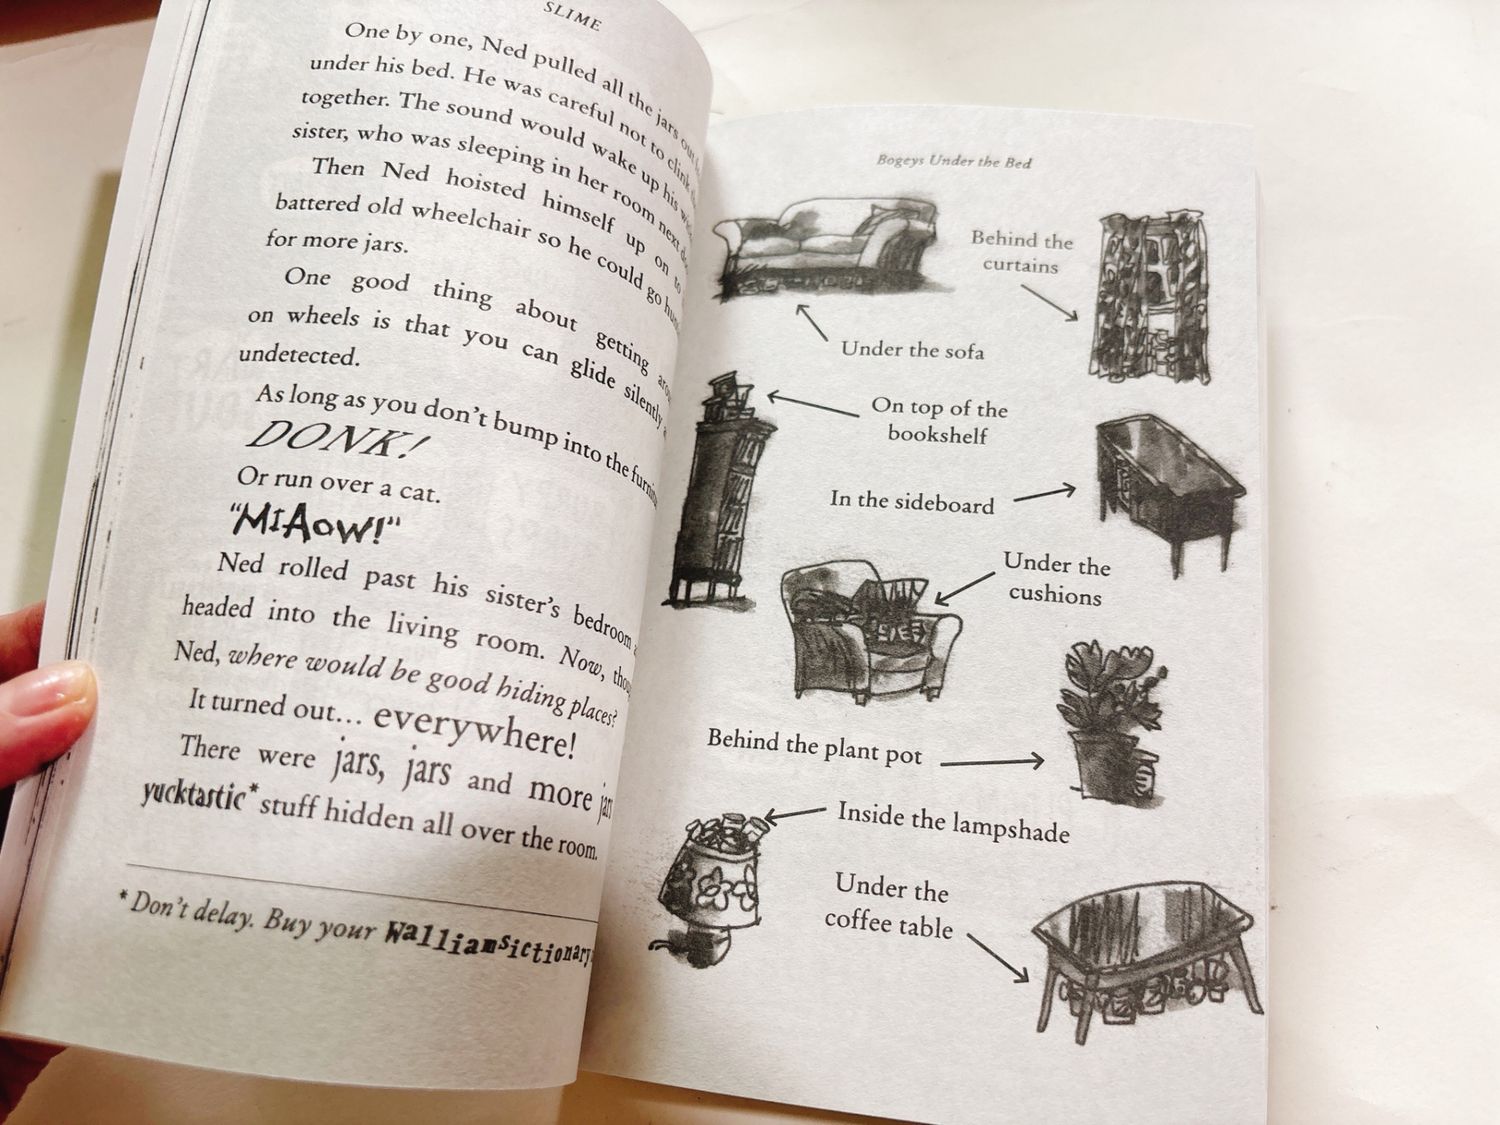 SLIME
One by one, Ned pulled all the jars out
under his bed. He was careful not to clink
together. The sound would wake up his
sister, who was sleeping in her room next
Then Ned hoisted himself up on to
battered old wheelchair so he could go
for more jars.
One good thing about getting
on wheels is that you can glide silently
undetected.
As long as you don't bump into the
DONK!
Or run over a cat.
"MIAOW!"
Ned rolled past his sister's bedroom
headed into the living room. Now,
Ned, where would be good hiding places?
It turned out... everywhere!
There were jars, jars and more
yucktastic* stuff hidden all over the room.
* Don't delay. Buy your Walliamsictionary
Bogeys Under the Bed
Behind the
curtains
Under the sofa
On top of the
bookshelf
In the sideboard
Under the
cushions
Behind the plant pot
Inside the lampshade
Under the
coffee table